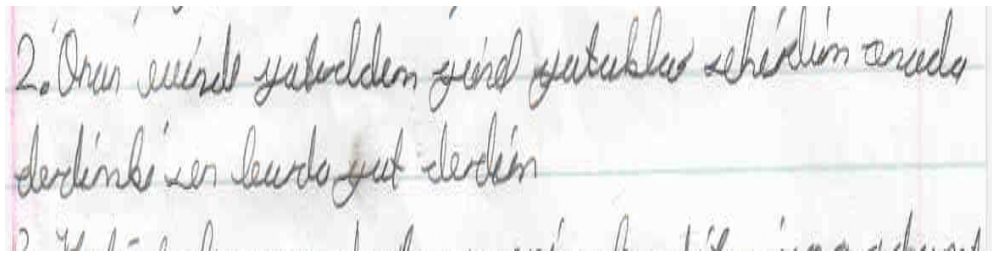 2. Onun evinde yatardım yine yataklar sehirdim orada
derdinki sen burda yat derdin